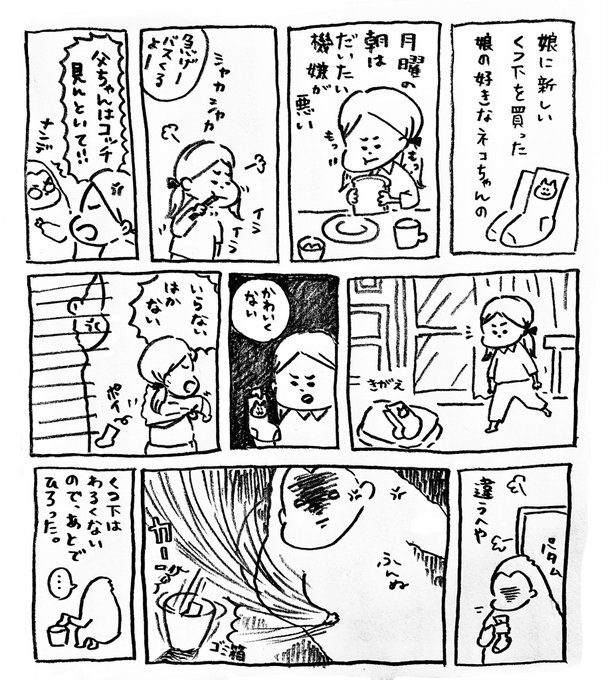 娘に新しい
くつ下を買った
娘の好きなネコちゃんの
月曜の
朝は
だいたい
機嫌が
悪い
もっ
もっ
急げー
バスくる
よー
シャカシャカ
イシ
イシ
父ちゃんはコッチ
見んといて!!
ナンデ
きがえ
かわいく
ない
いらない
はか
ない
ポイッ
違うへや
バタム
ふんぬ
ゴミ箱
くつ下は
わるくない
ので、あとで
ひろった。
…